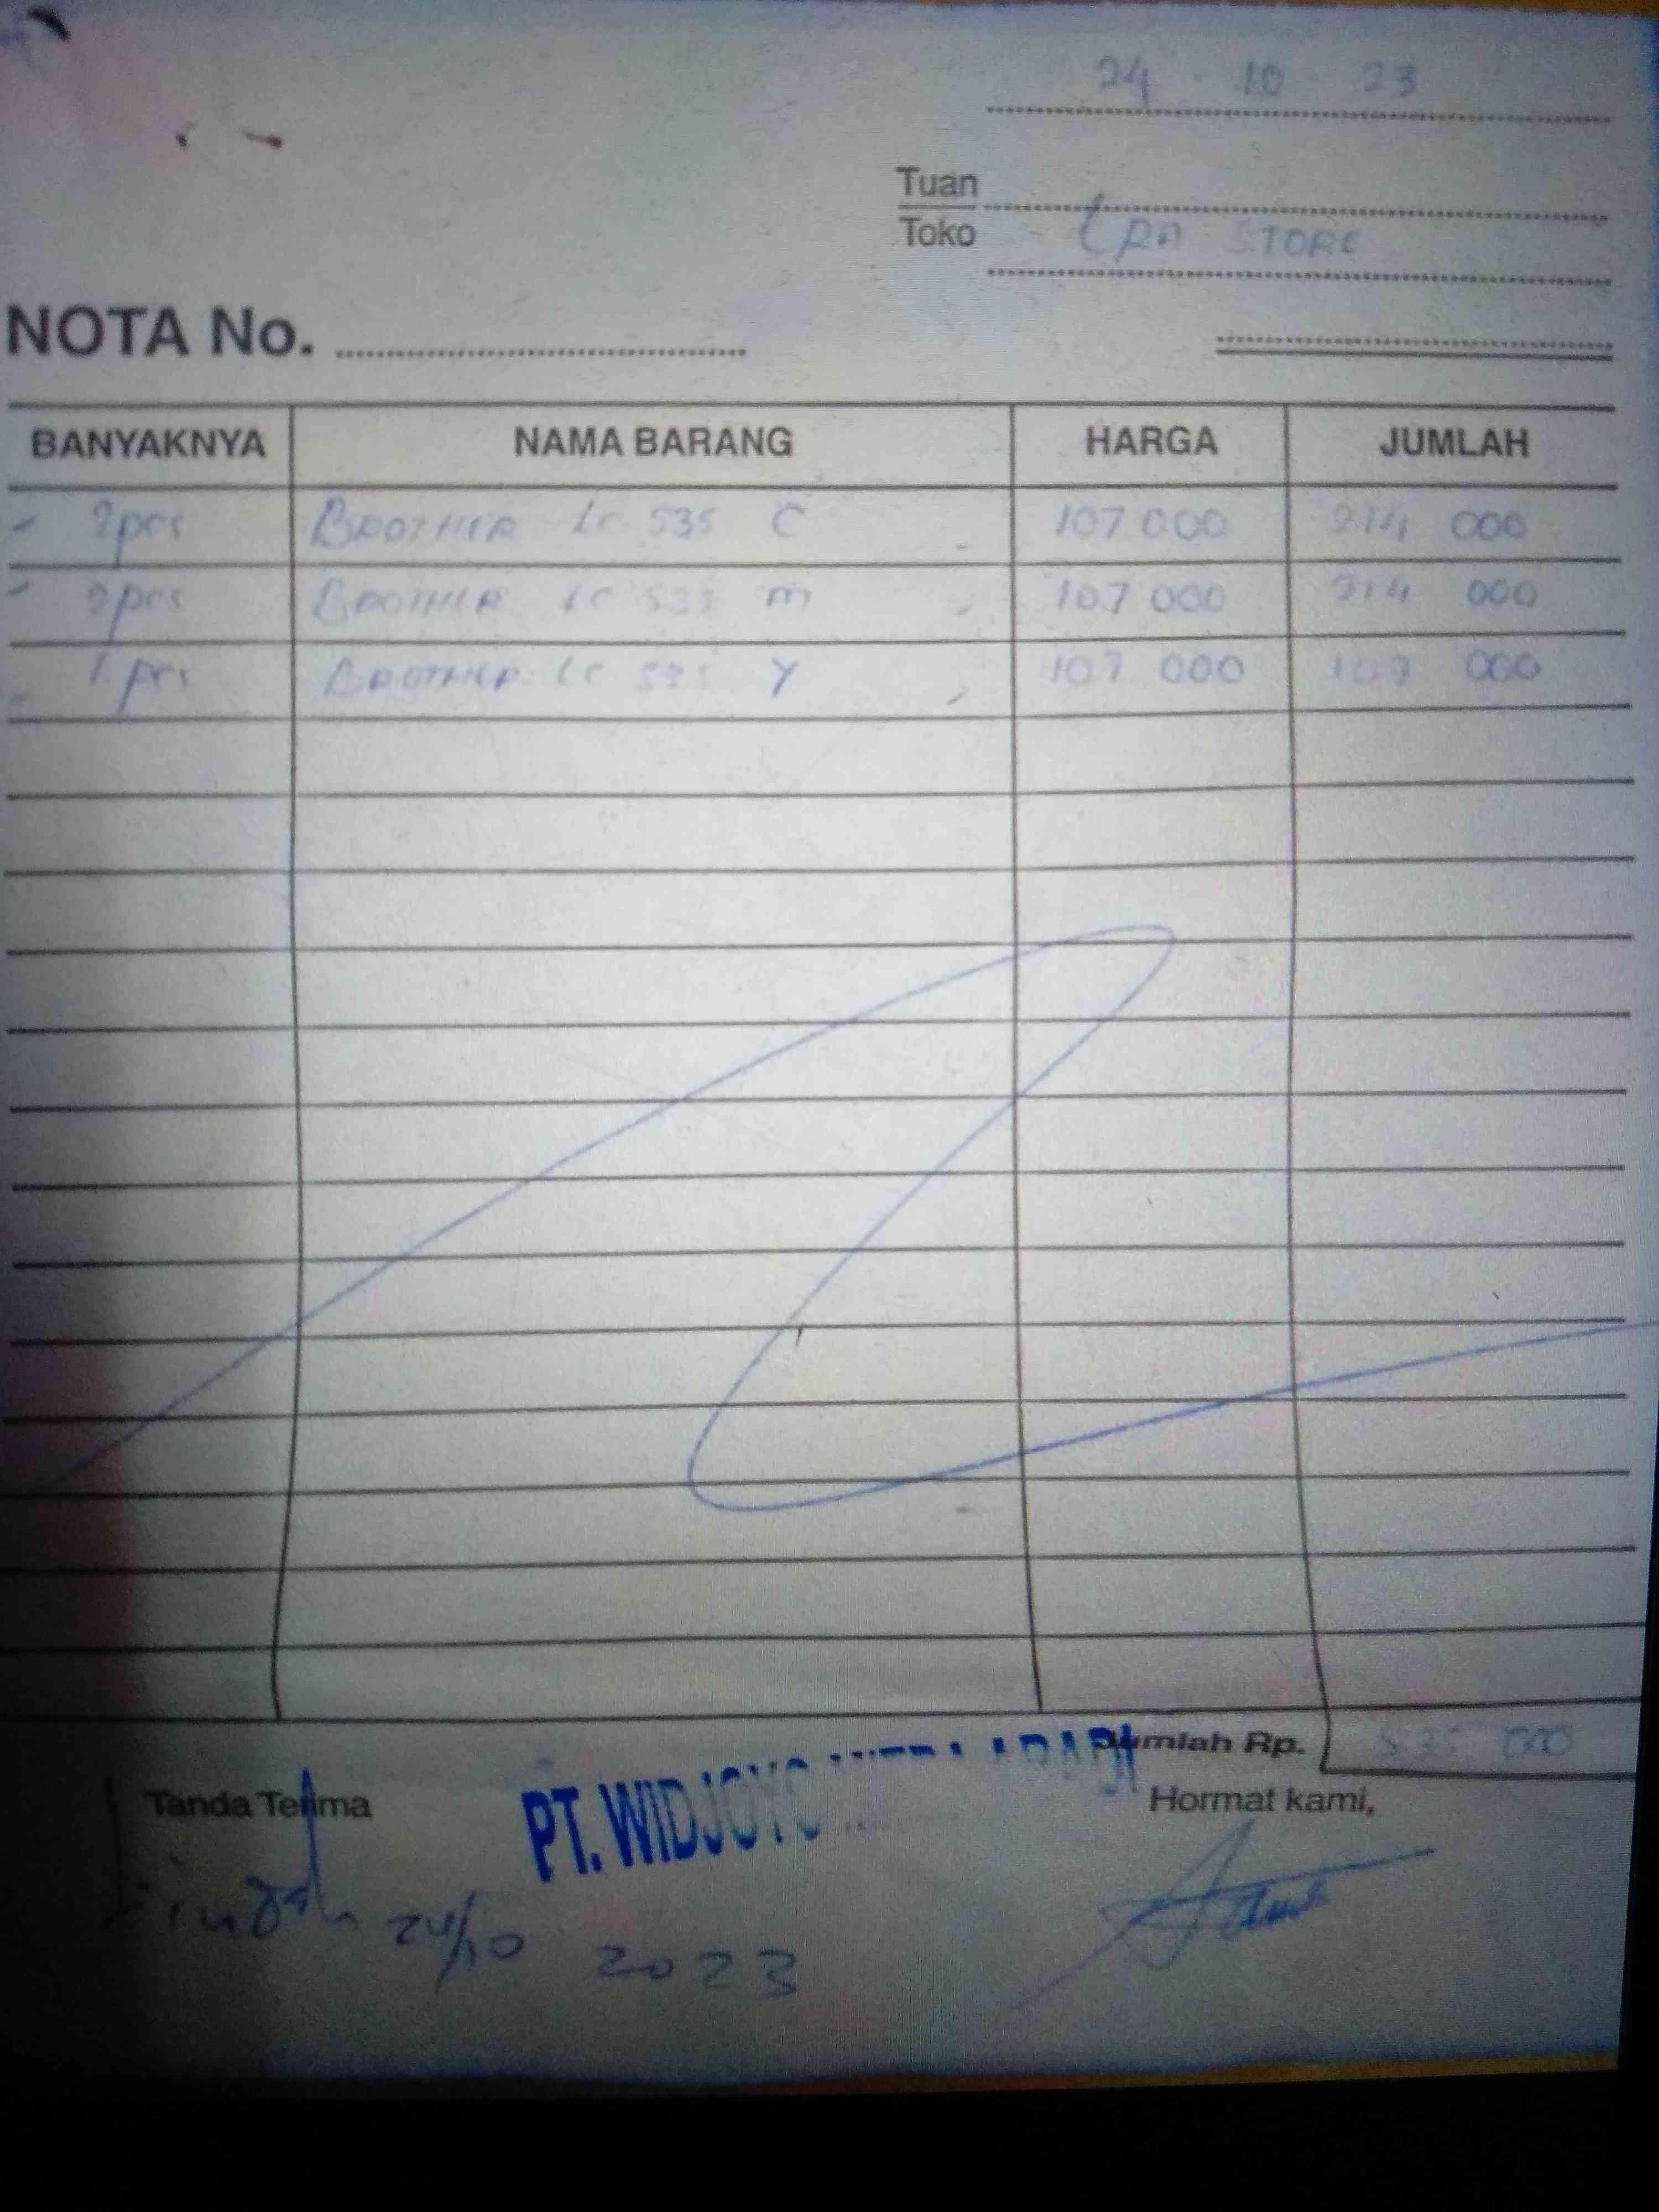 24 - 10 - 23
Tuan
Toko
STORE
NOTA No.
BANYAKNYA NAMA BARANG HARGA JUMLAH
2 pcs BROTHER LC 535 C 107 000 214 000
2 pcs BROTHER LC 535 m 107 000 214 000
1 pcs BROTHER LC 535 Y 107 000 107 000
Jumlah Rp. 535 000
Tanda Terima PT. WIDJOYO Hormat kami,
24/10 2023